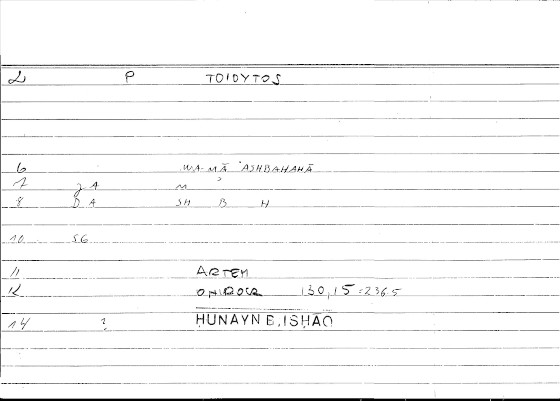 2 P TOIOYTOS
6 WA-MĀ ʾASHBAHAHĀ
7 JA M ʾ
8 DA SH B H
10 SG
11 ARTEM
12 ONIROCR 130,15=236.5
14 ? ḤUNAYN B. ISḤĀQ